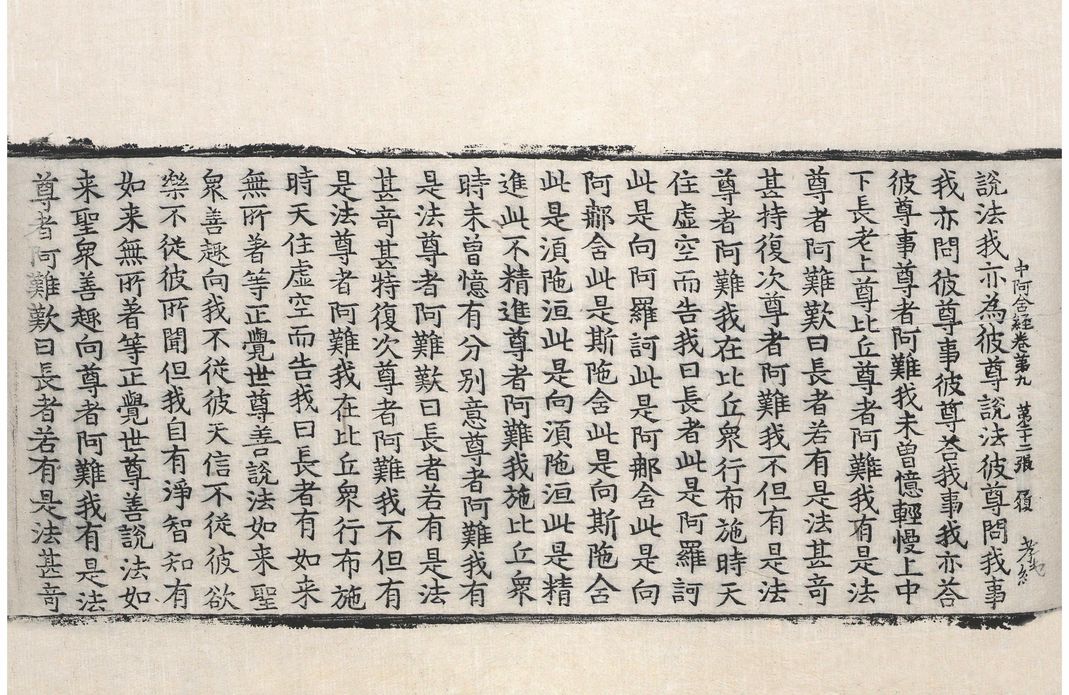 中阿含經卷第九 第十二張 履
說法我亦為彼尊說法彼尊問我事
我亦問彼尊事彼尊荅我事我亦荅
彼尊事尊者阿難我未曾憶輕慢上中
下長老上尊比丘尊者阿難我有是法
尊者阿難歎曰長者若有是法甚奇
甚特復次尊者阿難我不但有是法
尊者阿難我在比丘衆行布施時天
住虛空而告我曰長者此是阿羅訶
此是向阿羅訶此是阿那含此是向
阿那含此是斯陁含此是向斯陁含
此是湏陁洹此是向湏陁洹此是精
進此不精進尊者阿難我施比丘衆
時未曾憶有分别意尊者阿難我有
是法尊者阿難歎曰長者若有是法
甚奇甚特復次尊者阿難我不但有
是法尊者阿難我在比丘衆行布施
時天住虛空而告我曰長者有如来
無所著等正覺世尊善說法如来聖
衆善趣向我不從彼天信不從彼欲
樂不從彼所聞但我自有淨智知有
如来無所著等正覺世尊善說法如
来聖衆善趣向尊者阿難我有是法
尊者阿難歎曰長者若有是法甚奇